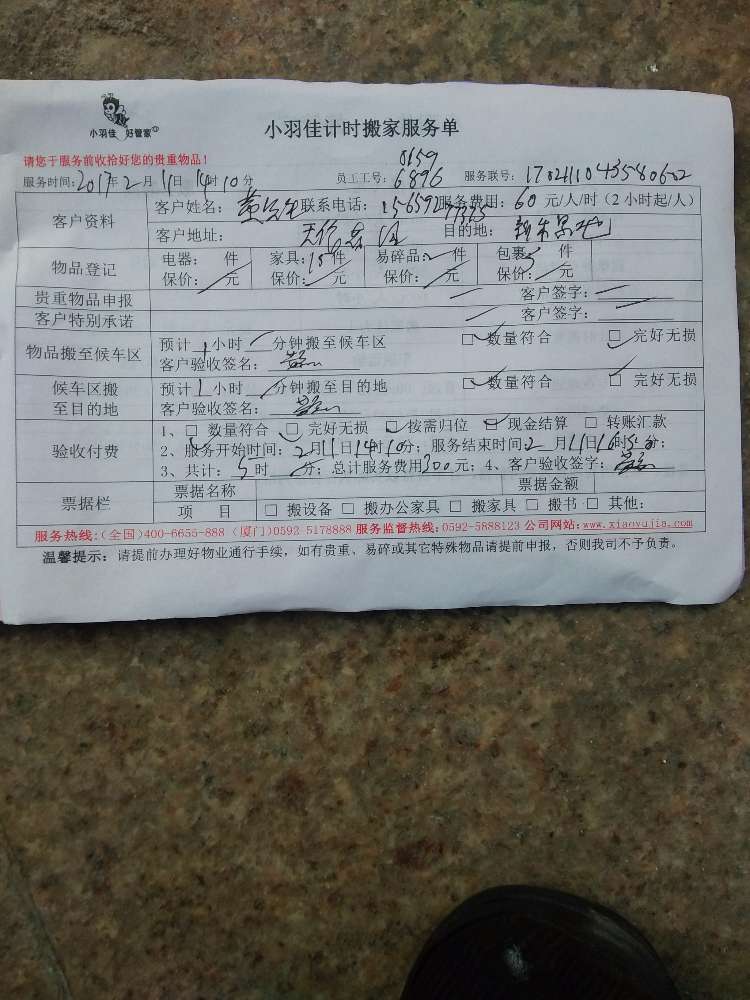 小羽佳 好管家
小羽佳计时搬家服务单
请您于服务前收拾好您的贵重物品！
0159
服务时间：2017年2月11日14时10分 员工工号：6896 服务联号：
客户资料 客户姓名：黄先生 联系电话： 服务费用：60元/人/时（2小时起/人）
客户地址： 目的地：
物品登记 电器： 件 家具：15件 易碎品： 件 包裹： 件
保价： 元 保价： 元 保价： 元 保价： 元
贵重物品申报 客户签字：
客户特别承诺 客户签字：
物品搬至候车区 预计1小时 分钟搬至候车区 □ 数量符合 □ 完好无损
客户验收签名：
候车区搬至目的地 预计1小时 分钟搬至目的地 □ 数量符合 □ 完好无损
客户验收签名：
验收付费 1、□ 数量符合 □ 完好无损 □ 按需归位 □ 现金结算 □ 转账汇款
2、服务开始时间：2月11日14时10分；服务结束时间：2月11日16时 分；
3、共计：5时 分；总计服务费用300元；4、客户验收签字：
票据栏 票据名称 票据金额
项 目 □ 搬设备 □ 搬办公家具 □ 搬家具 □ 搬书 □ 其他：
服务热线：（全国）400-6655-888（厦门）0592 5178888 服务监督热线：0592-5888123 公司网站：www.xiaoyujia.com
温馨提示：请提前办理好物业通行手续，如有贵重、易碎或其它特殊物品请提前申报，否则我司不予负责。